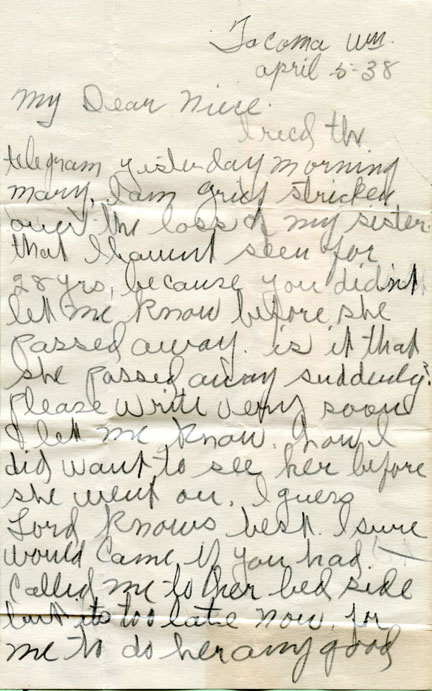 Tacoma Wn.
april 5-38
My Dear Niece.
I recd the
telegram yesterday morning
mary, I am grief stricken
over the loss of my sister
that I havent seen for
28 yrs, because you didn't
let me know before she
passed away. is it that
she passed away suddenly?
please write very soon
& let me know. how I
did want to see her before
she went on. I guess
Lord knows best. I sure
would came if you had
called me to her bed side
but its too late now. for
me to do her any good